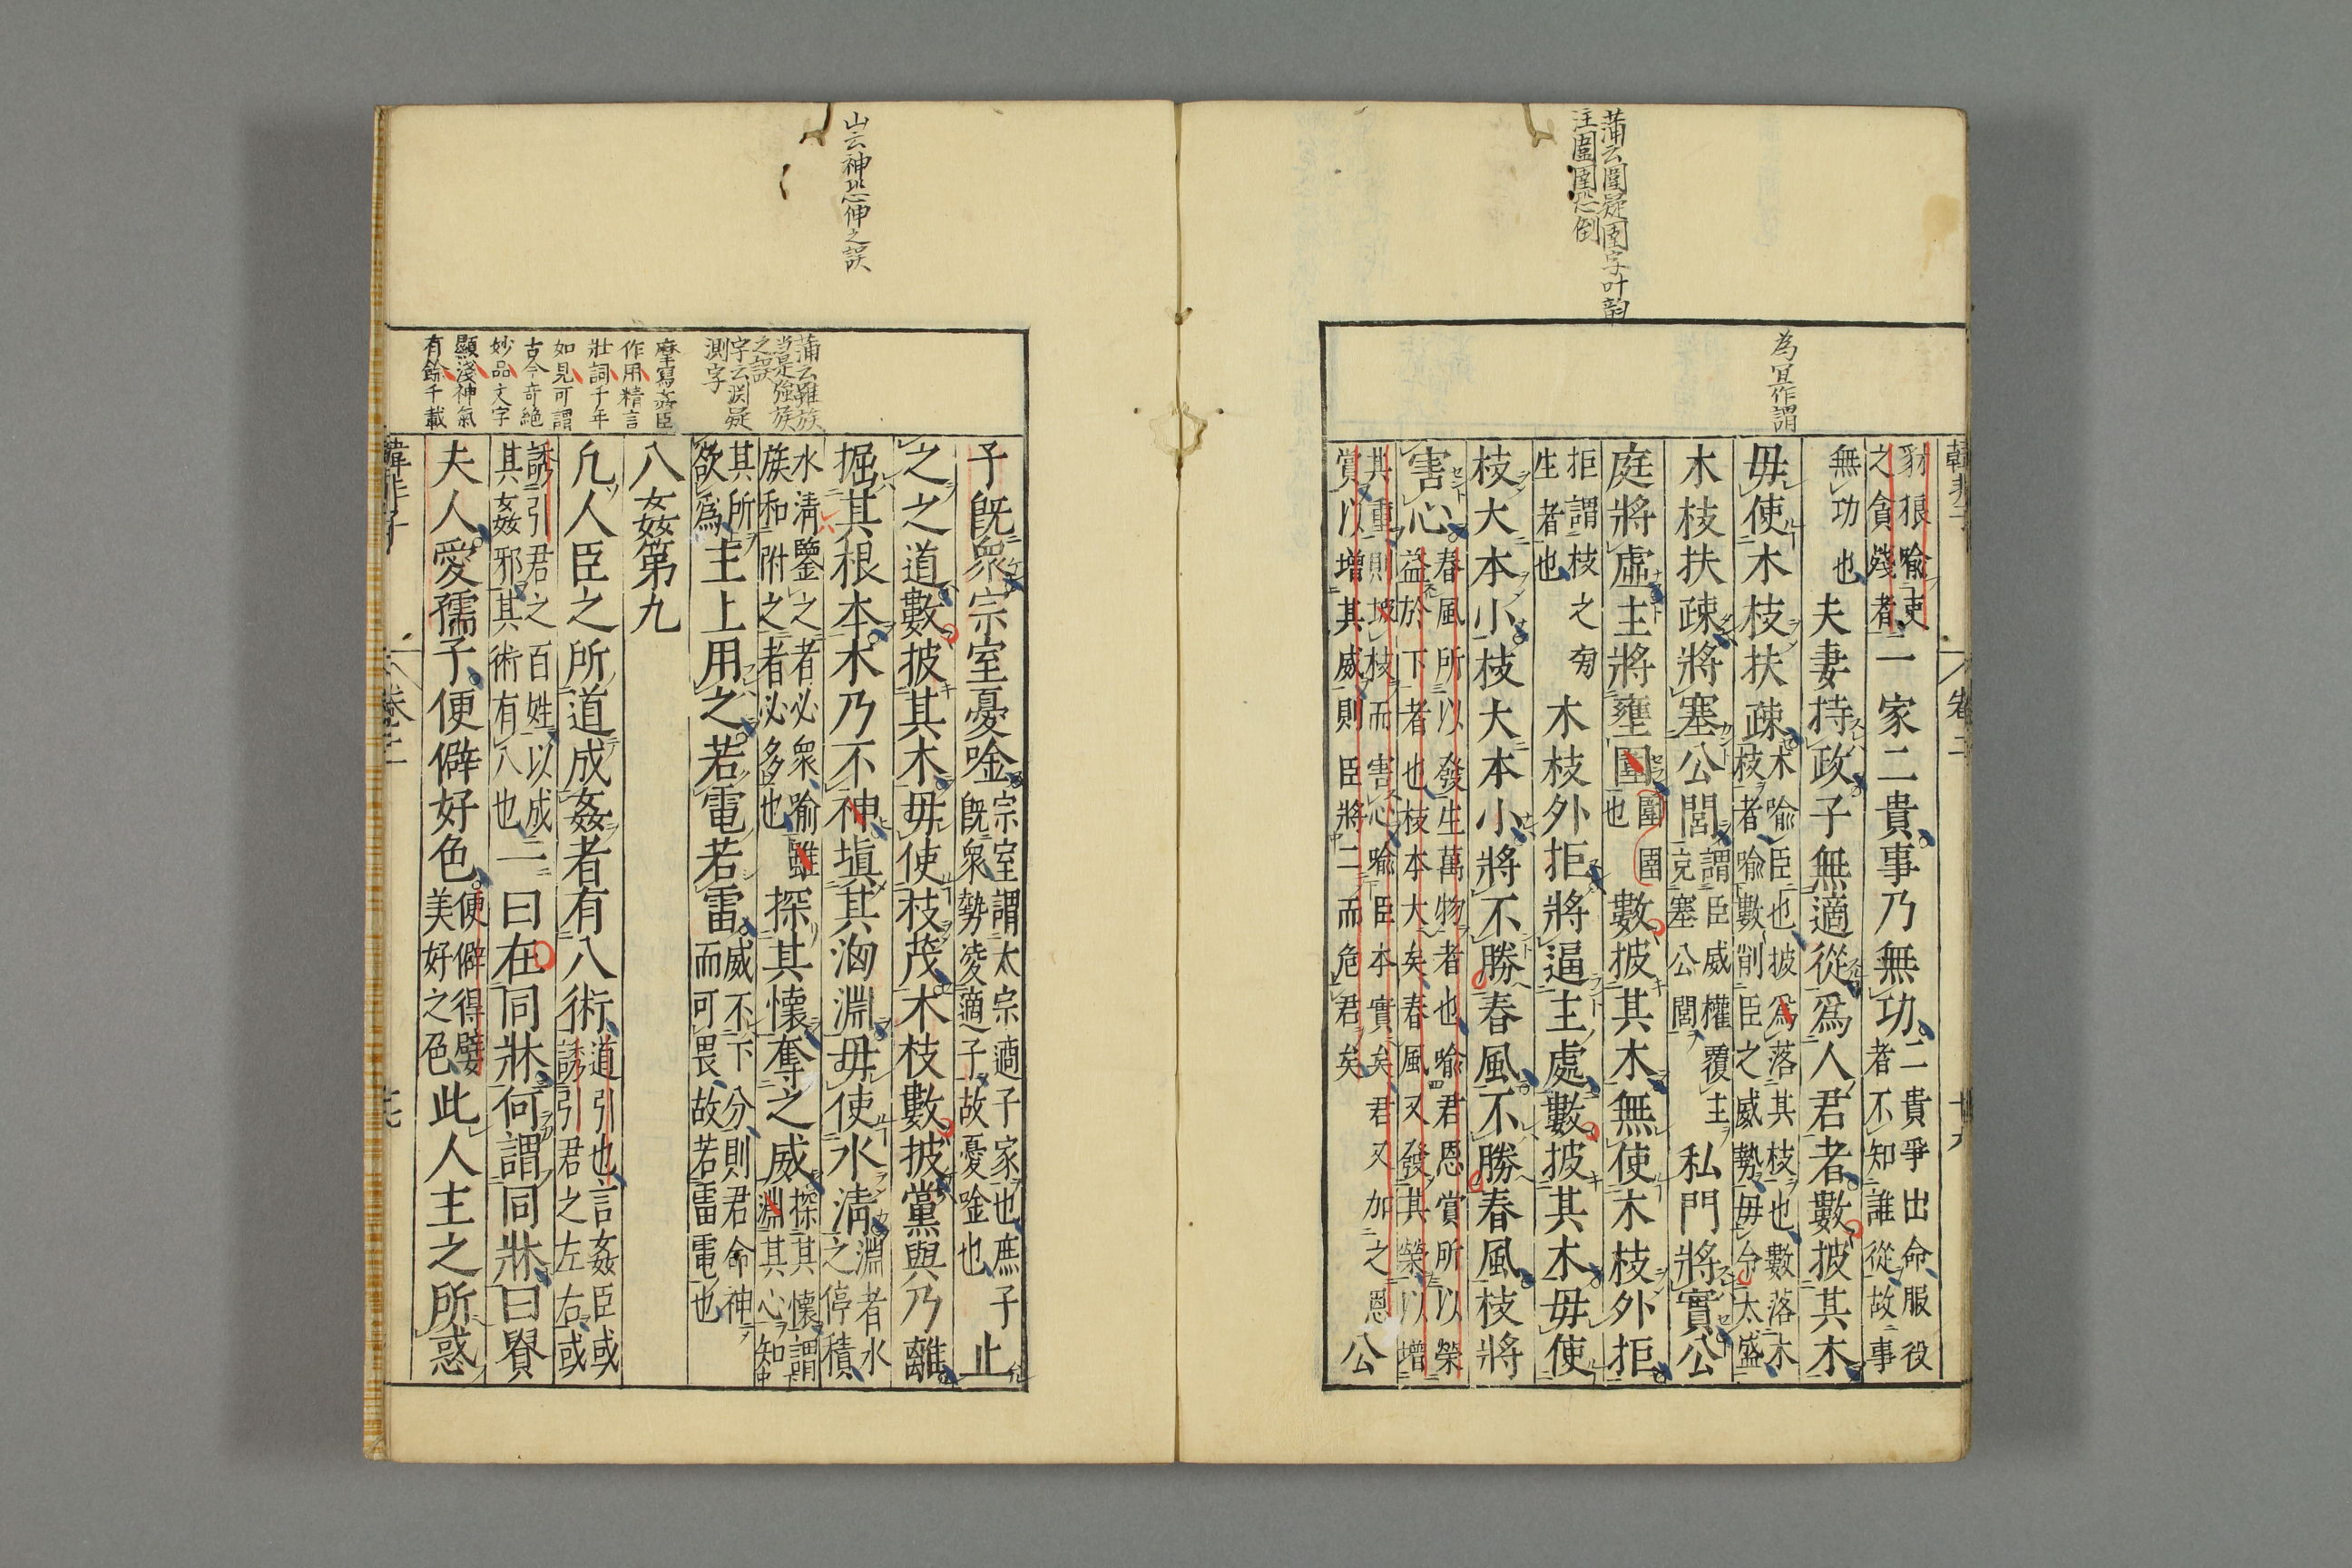 蒲云圍疑圉字叶韵
注圄圉恐倒
為冝作謂
豺狼喻吏
之貪殘者
一家二貴事乃無功
二貴爭出命服役
者不知誰從故事
無功也
夫妻持政子無適從爲人君者數披其木
毋使木枝扶疎
木喻臣也披爲落其枝也數落木
枝者喻數削臣之威勢毋令太盛
木枝扶疎將塞公閭
謂臣威權覆主
充塞公閭
私門將實公
庭將虛主將壅圍
圍圉
也
數披其木無使木枝外拒
拒謂枝之旁
生者也
木枝外拒將逼主處數披其木毋使
枝大本小枝大本小將不勝春風不勝春風枝將
害心
春風所以發生萬物者也喻君恩賞所以榮
益於下者也枝本大矣春風又發其榮以增
其重則披枝而害心喻臣本實矣君又加之恩
賞以增其威則臣將二而危君矣
公
山云神恐伸之誤
子既衆宗室憂唫
宗室謂太宗適子家也庶子
既衆勢凌適子故憂唫也
止
之之道數披其木毋使枝茂木枝數披黨與乃離
掘其根本木乃不神塡其洶淵毋使水淸
淵者水
之停積
水淸鑒之者必衆喻雖
族和附之者必多也
探其懷奪之威
探其懷謂
淵其心知
其所
欲爲
主上用之若電若雷
威不下分則君命神
而可畏故若雷電也
蒲云雖族
当是強族
之誤
字云渊疑
測字
八姦第九
凢人臣之所道成姦者有八術
道引也言姦臣或
誘引君之左右或
誘引君之百姓以成
其姦邪其術有八也
一曰在同牀何謂同牀曰貴
夫人愛孺子便僻好色
便僻得嬖
美好之色
此人主之所惑
摩寫姦臣
作用精言
壯詞千年
如見可謂
古今奇絶
妙品文字
顯淺神氣
有餘千載
韓非子
卷二